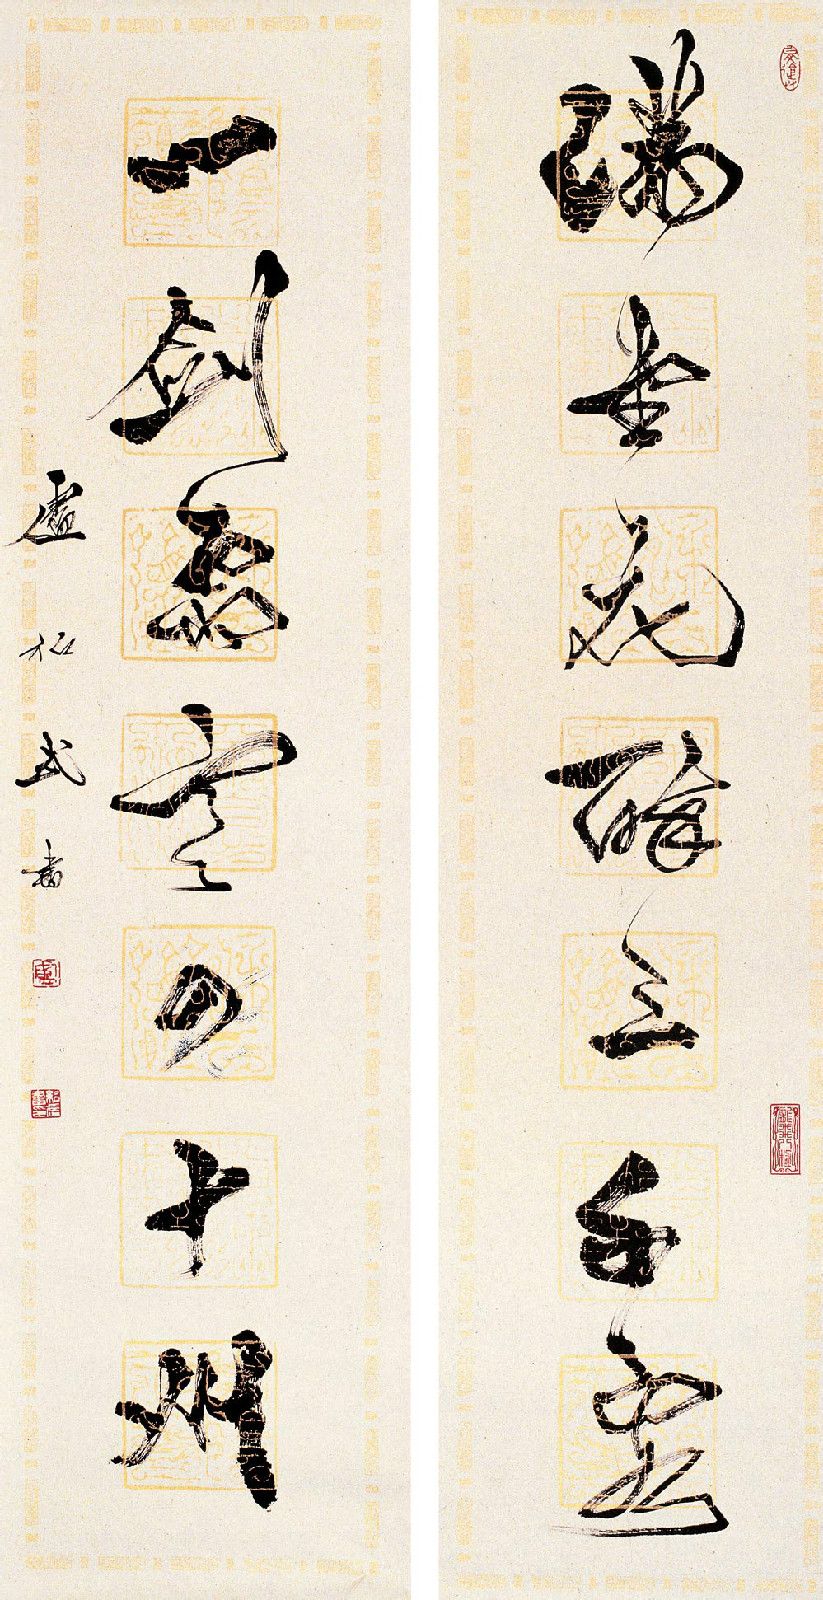 满堂花醉三千客
一剑霜寒四十州
卢松武书